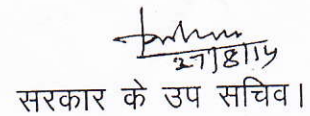 27/8/14
सरकार के उप सचिव।